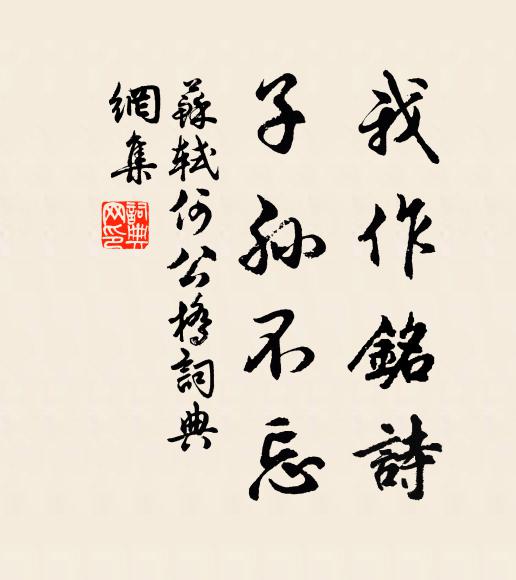 我作銘詩
子孫不忘
蘇軾何公橋詞典
網集
詞典
网印